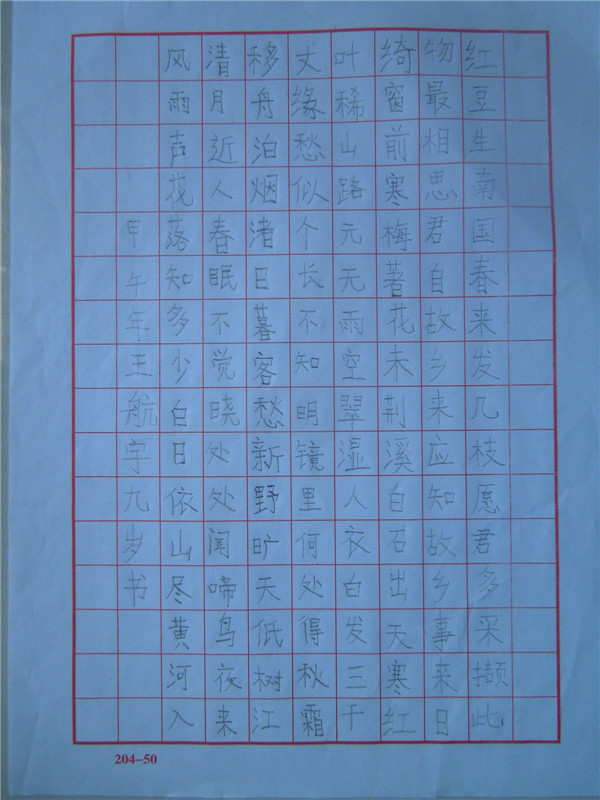 红豆生南国春来发几枝愿君多采撷此
物最相思君自故乡来应知故乡事来日
绮窗前寒梅著花未荆溪白石出天寒红
叶稀山路元无雨空翠湿人衣白发三千
丈缘愁似个长不知明镜里何处得秋霜
移舟泊烟渚日暮客愁新野旷天低树江
清月近人春眠不觉晓处处闻啼鸟夜来
风雨声花落知多少白日依山尽黄河入
甲午年王航宇九岁书
204-50